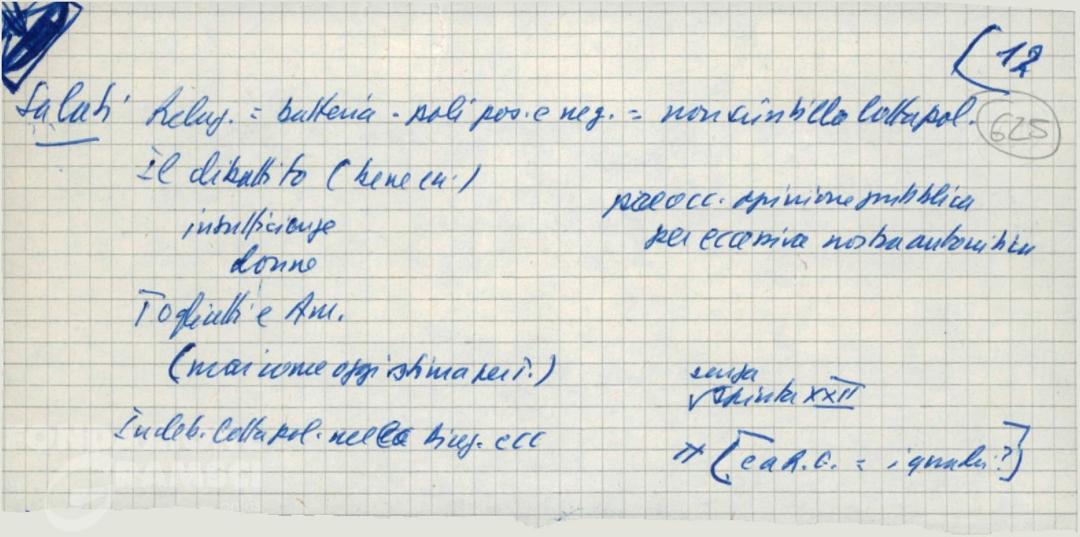 12
625
Salati Relaz. = batteria - poli pos. e neg. = non scintilla lotta pol.
Il dibattito (bene cu.)
insufficienze
donne
preocc. opinione pubblica
per eccessiva nostra autocritica
Togliatti e Am.
(mai come oggi stima per T.)
senza
√ spinta XXII
Indeb. lotta pol. nella ecc
(e a R. G. = i quadri?)